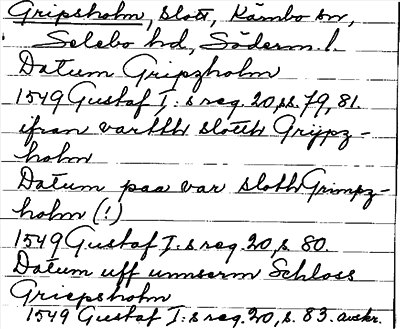 Gripsholm, slott, Kärnbo sn,
Selebo hd, Söderm. l.
Datum Gripzholm
1549 Gustaf I:s reg. 20, ss. 79, 81.
ifran vartth slotth Grijpz-
holm
Datum paa var sloth Grimpz-
holm (!)
1549 Gustaf I:s reg. 20, s. 80.
Datum uff unnserm Schloss
Griepsholm
1549 Gustaf I:s reg. 20, s. 83. avskr.